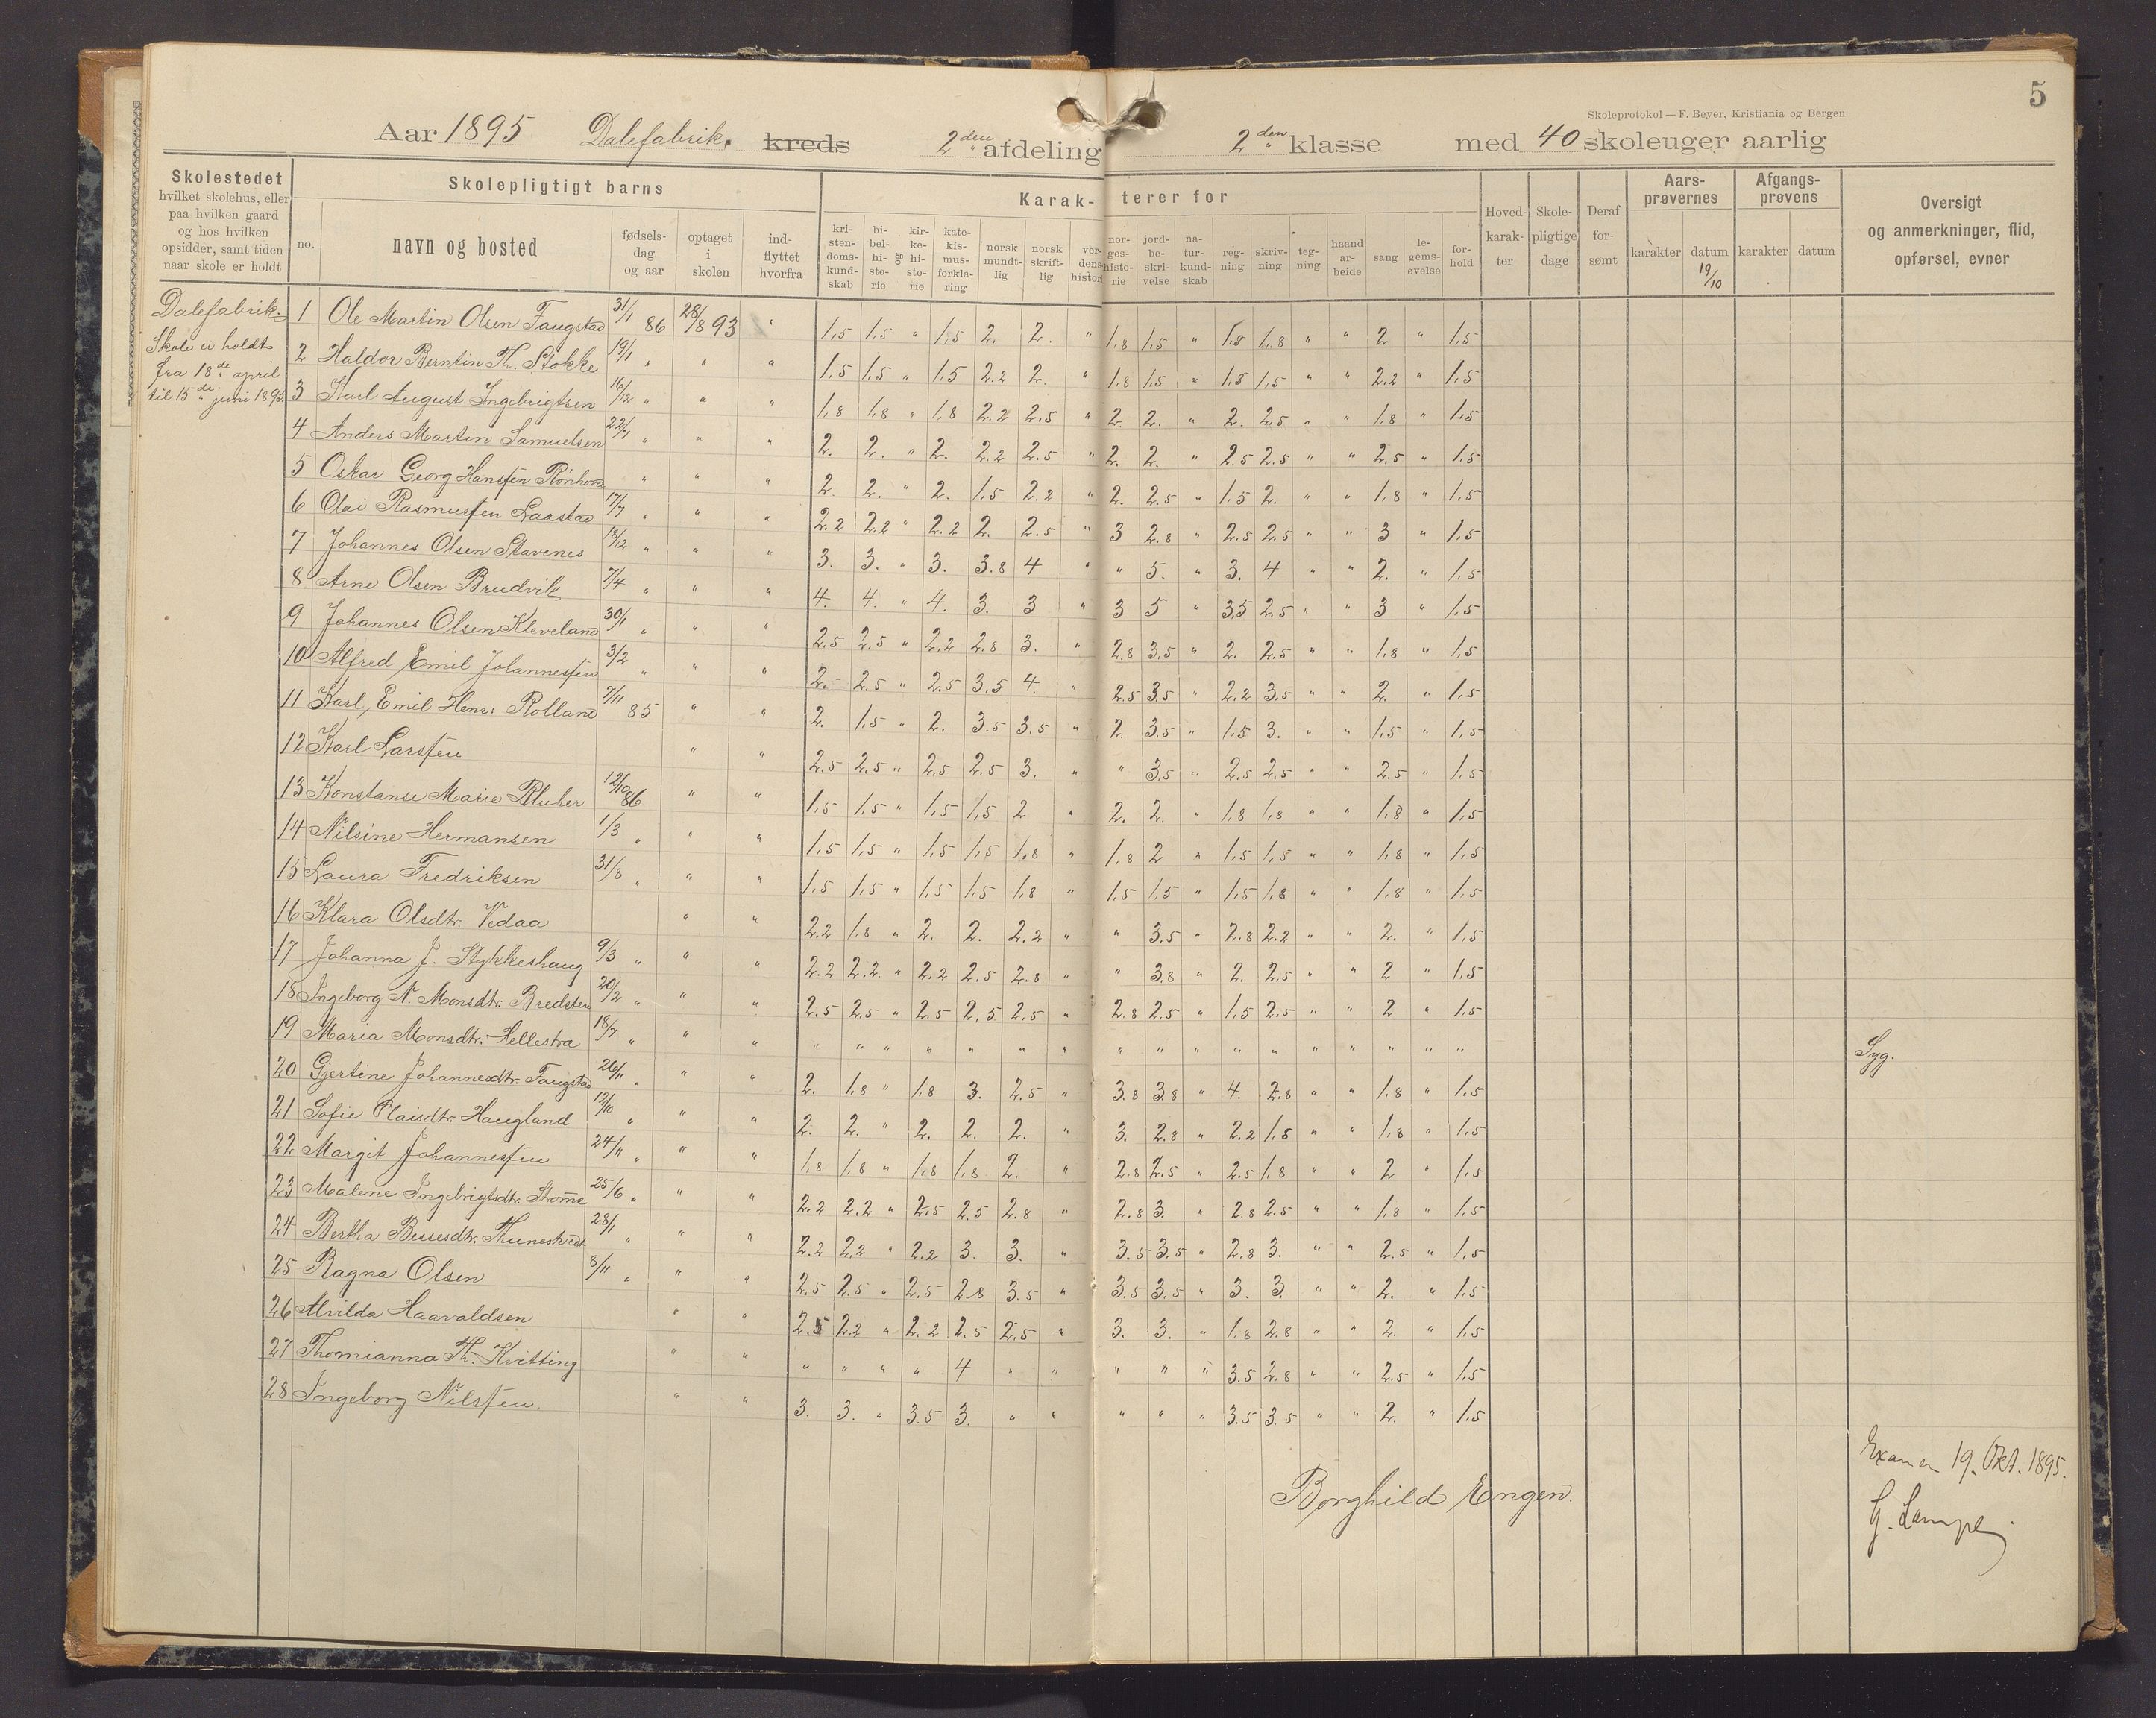 5
Skoleprotokol — F. Beyer, Kristiania og Bergen
Aar 1895 Dalefabrik. kreds 2den afdeling 2den klasse med 40 skoleuger aarlig
Skolestedet hvilket skolehus, eller paa hvilken gaard og hos hvilken opsidder, samt tiden naar skole er holdt
Skolepligtigt barns
no. navn og bosted fødselsdag og aar optaget i skolen indflyttet hvorfra
Karakterer for
kristendomskundskab bibelhistorie og kirkehistorie katekismusforklaring norsk mundtlig norsk skriftlig verdenshistor norgeshistorie jordbeskrivelse naturkundskab regning skrivning tegning haandarbeide sang legemsøvelse forhold
Hovedkarakter Skolepligtige dage Deraf forsømt
Aarsprøvernes karakter datum 19/10
Afgangsprøvens karakter datum
Oversigt og anmerkninger, flid, opførsel, evner
Dalefabrik.
Skole er holdt
fra 18de april
til 15de juni 1895.
1 Ole Martin Olsen Faugstad 31/1 86 28/8 93 " 1,5 1,5 " 1,5 2. 2. " 1,8 1,5 " 1,5 1,8 " " 2 " 1,5
2 Haldor Berntin Th. Stokke 19/1 " " " 1,5 1,5 " 1,5 2.2 2. " 1,8 1,5 " 1,5 1,5 " " 2.2 " 1,5
3 Karl August Ingebrigtsen 16/12 " " " 1,8 1,8 " 1,8 2.2 2.5 " 2. 2. " 2. 2.5 " " 1,8 " 1,5
4 Anders Martin Samuelsen 22/7 " " " 2. 2. " 2. 2.2 2.5 " 2. 2. " 2.5 2.5 " " 2.5 " 1,5
5 Oskar Georg Hansen " " " 2. 2. " 2. 1,5 2.2 " 2. 2.5 " 1,5 2. " " 1,8 " 1,5
6 Olai Rasmussen Laastad 17/7 " " " 2.2 2.2 " 2.2 2. 2.5 " 3 2.8 " 2.5 2.5 " " 3 " 1,5
7 Johannes Olsen Stavenes 18/12 " " " 3. 3. " 3. 3.8 4 " " 5. " 3. 4 " " 2. " 1,5
8 Arne Olsen Brudvik 7/4 " " " 4. 4. " 4. 3. 3 " 3 5 " 3.5 2.5 " " 3 " 1,5
9 Johannes Olsen Kleveland 30/1 " " " 2.5 2.5 " 2.2 2.8 3. " 2.8 3.5 " 2. 2.5 " " 1,8 " 1,5
10 Alfred Emil Johannessen 3/2 " " " 2. 2.5 " 2.5 3.5 4. " 2.5 3.5 " 2.2 3.5 " " 2. " 1,5
11 Karl, Emil Henr: Rolland 7/11 85 " " 2. 1,5 " 2. 3.5 3.5 " 2. 3.5 " 1,5 3. " " 1,5 " 1,5
12 Karl Larssen " " 2.5 2.5 " 2.5 2.5 3. " " 3.5 " 2.5 2.5 " " 2.5 " 1,5
13 Konstanse Marie 12/10 86 " " 1,5 1,5 " 1,5 1,5 2 " 2. 2. " 1,8 1,8 " " 1,8 " 1,5
14 Nilsine Hermansen 1/3 " " " 1,5 1,5 " 1,5 1,5 1,8 " 1,8 2 " 1,5 1,5 " " 1,8 " 1,5
15 Laura Fredriksen 31/8 " " " 1,5 1,5 " 1,5 1,5 1,8 " 1,5 1,5 " 1,5 1,8 " " 1,8 " 1,5
16 Klara Olsdtr. Vedaa " " 2.2 1,8 " 2. 2. 2.2 " " 3.5 " 2.8 2.2 " " 2. " 1,5
17 Johanna J. Stykkeshaug 9/3 " " " 2.2 2.2 " 2.2 2.5 2.8 " " 3.8 " 2. 2.5 " " 2 " 1,5
18 Ingeborg N. Monsdtr. Bredsten 20/2 " " " 2.5 2.5 " 2.5 2.5 2.5 " 2.8 2.5 " 1,5 2.5 " " 2 " 1,5
19 Maria Monsdtr. Hellestra 18/7 " " " " " " " " " " " " " " " " " " " " Syg.
20 Gjertine Johannesdtr. Faugstad 26/11 " " " 2. 1,8 " 1,8 3. 2.5 " 3.8 3.8 " 4. 2.8 " " 1,8 " 1,5
21 Sofie Olaisdtr. Haugland 12/10 " " " 2. 2. " 2. 2. 2. " 3. 2.8 " 2.2 1,5 " " 1,8 " 1,5
22 Margit Johannessen 24/11 " " " 1,8 1,8 " 1,8 1,8 2. " 2.8 2.5 " 2.5 1,8 " " 2 " 1,5
23 Malene Ingebrigtsdtr. 25/6 " " " 2.2 2.2 " 2.5 2.5 2.8 " 2.8 3. " 2.8 2.5 " " 1,8 " 1,5
24 Bertha Bessesdtr. 28/1 " " " 2.2 2.2 " 2.2 3. 3. " 3.5 3.5 " 2.8 3. " " 2.5 " 1,5
25 Ragna Olsen 8/11 " " " 2.5 2.5 " 2.5 2.8 3.5 " 3.5 3.5 " 3. 3. " " 2. " 1,5
26 Alvilda Haavaldsen " " 2.5 2.2 " 2.2 2.5 2.5 " 3. 3. " 1,8 2.8 " " 2. " 1,5
27 Thomianna Th. Kvitting " " " " " " 4 " " " " " 3.5 2.8 " " 2.5 " 1,5
28 Ingeborg Nilssen " " 3. 3. " 3.5 3. " " " " " 3.5 3.5 " " 2. " 1,5
Examen 19. Okt. 1895.
Borghild Engen.
G. Lampe